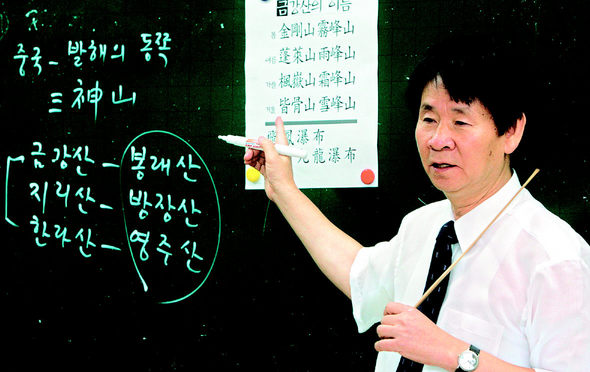 중국 - 발해의 동쪽
三神山
금강산 - 봉래산
지리산 - 방장산
한라산 - 영주산
금강산의 이름
봄 金剛山 霧峰山
여름 蓬萊山 雨峰山
가을 楓嶽山 霜峰山
겨울 皆骨山 雪峰山
瀑布
九龍瀑布